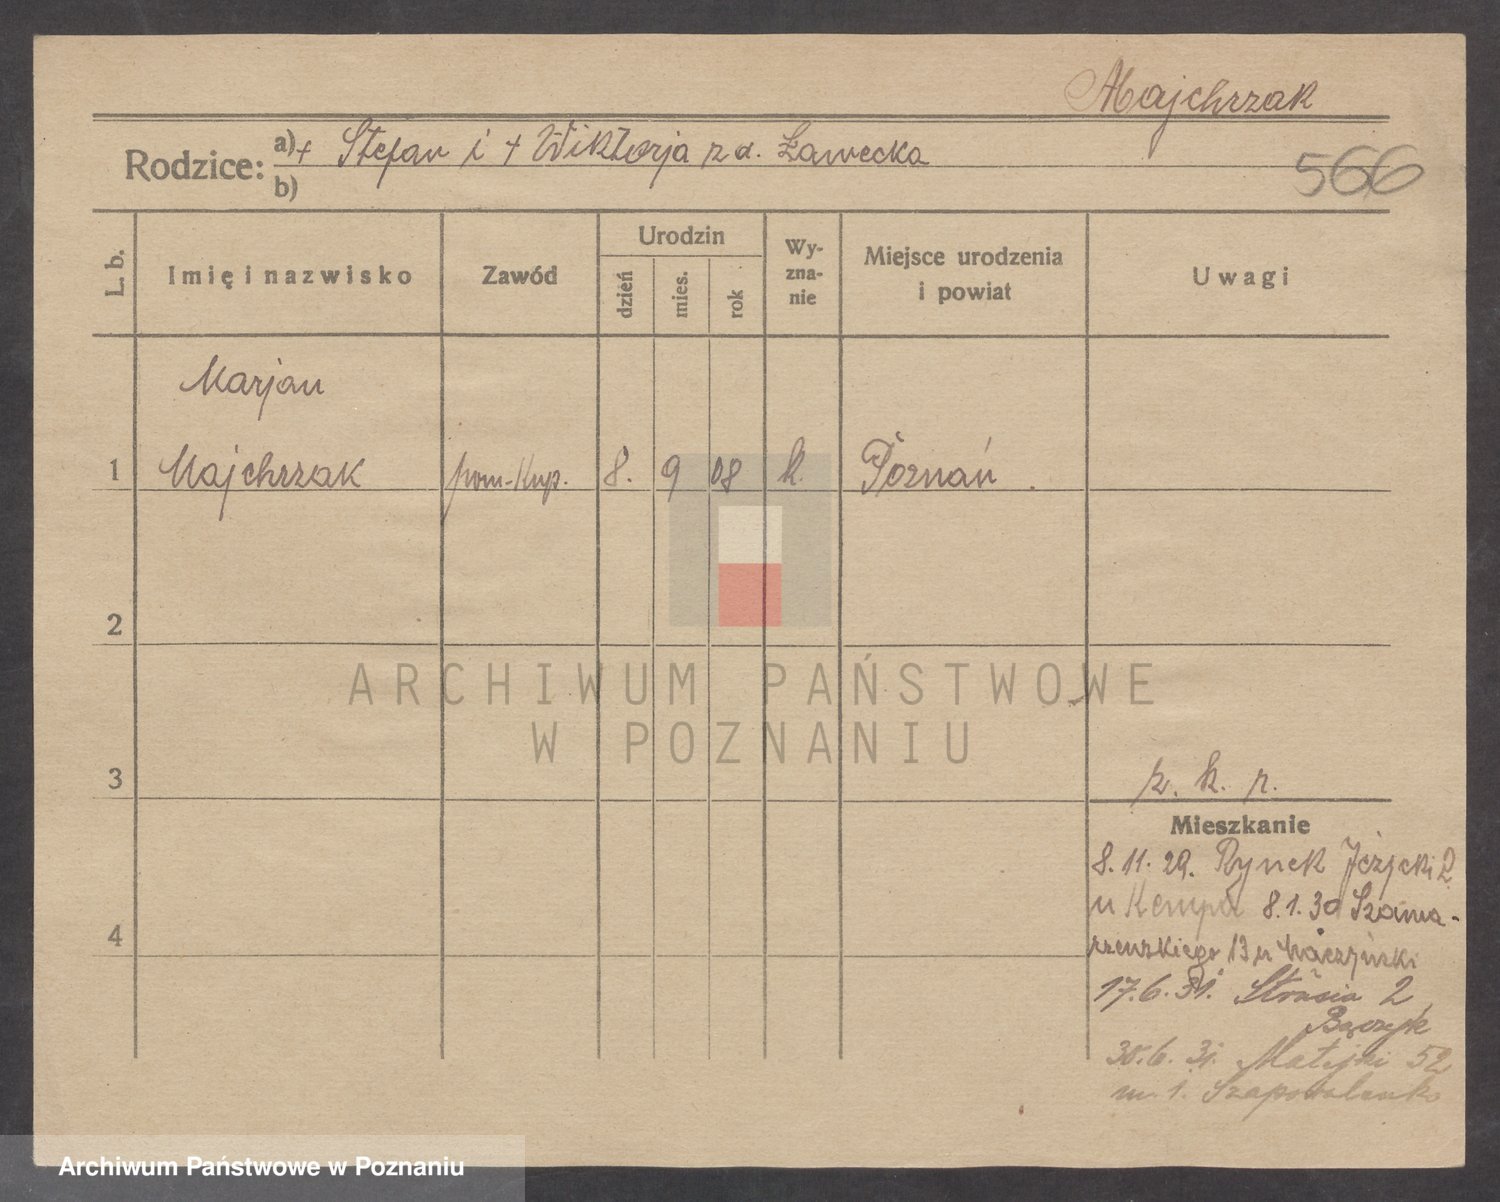 Majchrzak
566
Rodzice: a) + Stefan i + Wiktorja z d. Ławecka
b)
L. b.
Imię i nazwisko
Zawód
Urodzin
dzień
mies.
rok
Wy-
zna-
nie
Miejsce urodzenia
i powiat
Uwagi
Marjan
1 Majchrzak pom-kup. 8. 9 08 k. Poznań.
2
3
4
ARCHIWUM PAŃSTWOWE
W POZNANIU
p. k. p.
Mieszkanie
8.11.29. Rynek Jeżycki 2
u Kempa 8.1.30 Szama-
rzewskiego 13 u
17.6.31. Strusia 2
Bączyk
30.6.31. Matejki 52
m. 1. Szapowalenko
Archiwum Państwowe w Poznaniu